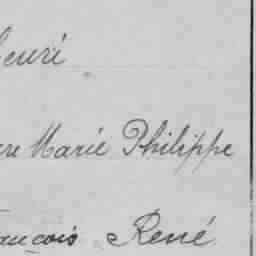 Henri
Marie Philippe
François René